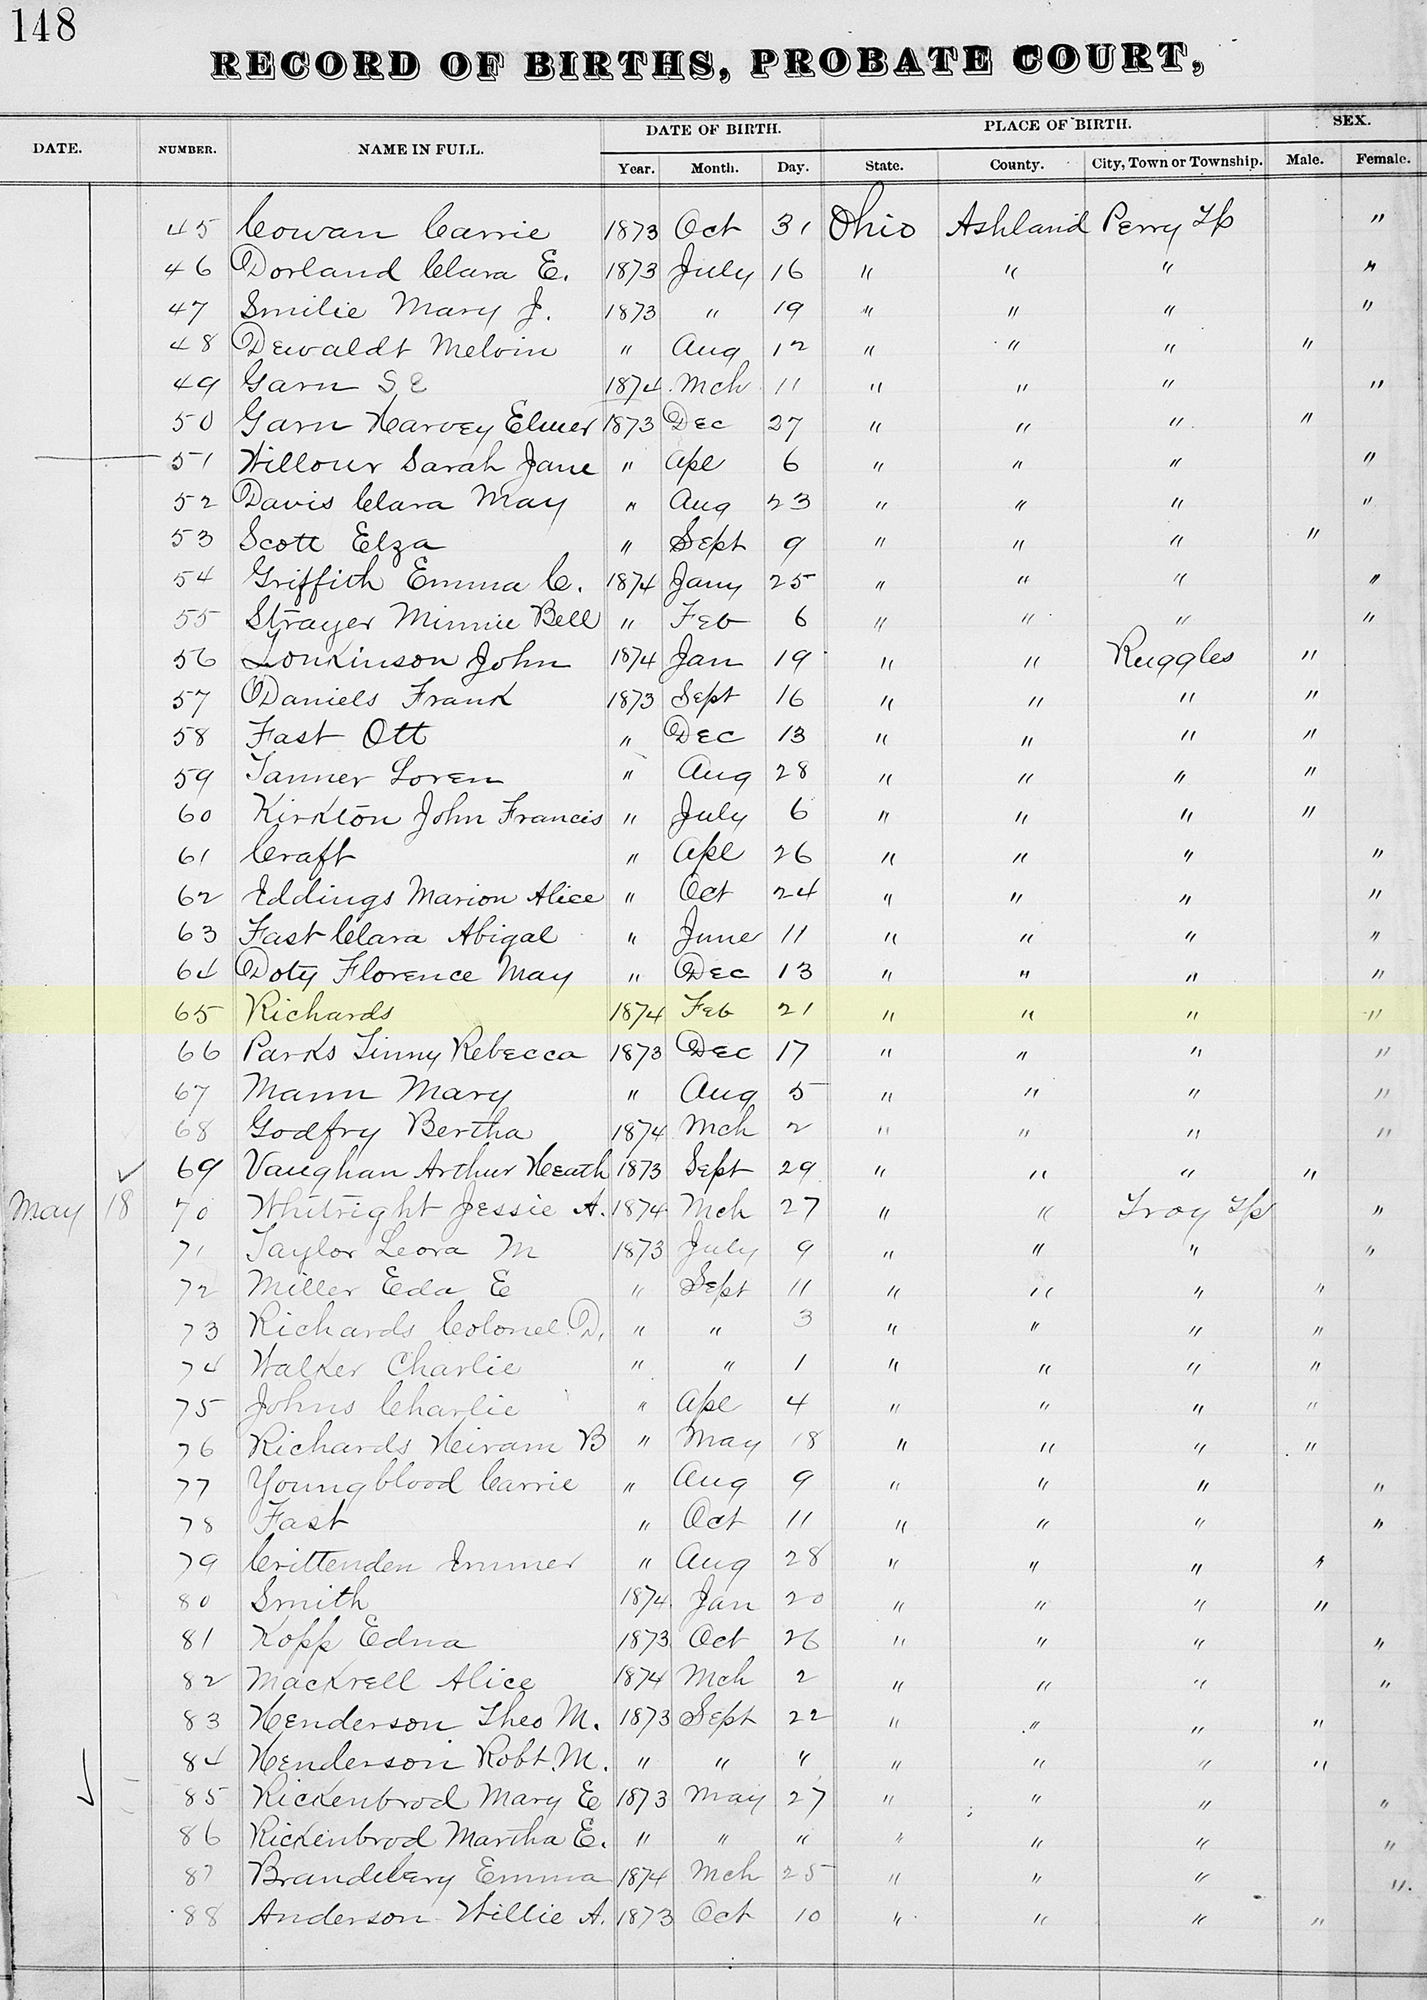 148
RECORD OF BIRTHS, PROBATE COURT,
DATE. NUMBER. NAME IN FULL. DATE OF BIRTH. PLACE OF BIRTH. SEX.
Year. Month. Day. State. County. City, Town or Township. Male. Female.
45 Cowan Carrie 1873 Oct 31 Ohio Ashland Perry Tp "
46 Dorland Clara E. 1873 July 16 " " " "
47 Smilie Mary J. 1873 " 19 " " " "
48 Dewaldt Melvin " Aug 12 " " " "
49 Garn S E 1874 Mch 11 " " " "
50 Garn Harvey Elmer 1873 Dec 27 " " " "
51 Willour Sarah Jane " Apl 6 " " " "
52 Davis Clara May " Aug 23 " " " "
53 Scott Elza " Sept 9 " " " "
54 Griffith Emma C. 1874 Jany 25 " " " "
55 Strayer Minnie Bell " Feb 6 " " " "
56 John 1874 Jan 19 " " Ruggles "
57 Daniels Frank 1873 Sept 16 " " " "
58 Fast Ott " Dec 13 " " " "
59 Tanner Loren " Aug 28 " " " "
60 Kirkton John Francis " July 6 " " " "
61 Craft " Apl 26 " " " "
62 Eddings Marion Alice " Oct 24 " " " "
63 Fast Clara Abigal " June 11 " " " "
64 Doty Florence May " Dec 13 " " " "
65 Richards 1874 Feb 21 " " " "
66 Parks Linny Rebecca 1873 Dec 17 " " " "
67 Mann Mary " Aug 5 " " " "
68 Godfry Bertha 1874 Mch 2 " " " "
69 Vaughan Arthur Heath 1873 Sept 29 " " " "
May 18 70 Whitright Jessie A. 1874 Mch 27 " " Troy Tp "
71 Taylor Leora M 1873 July 9 " " " "
72 Miller Eda E " Sept 11 " " " "
73 Richards Colonel D. " " 3 " " " "
74 Walker Charlie " " 1 " " " "
75 Johns Charlie " Apl 4 " " " "
76 Richards Heiram B " May 18 " " " "
77 Youngblood Carrie " Aug 9 " " " "
78 Fast " Oct 11 " " " "
79 Crittenden Immer " Aug 28 " " " "
80 Smith 1874 Jan 20 " " " "
81 Kopp Edna 1873 Oct 26 " " " "
82 Mackrell Alice 1874 Mch 2 " " " "
83 Henderson Theo M. 1873 Sept 22 " " " "
84 Henderson Robt. M. " " " " " " "
85 Rickenbrod Mary E 1873 May 27 " " " "
86 Rickenbrod Martha E. " " " " " " "
87 Brandebery Emma 1874 Mch 25 " " " "
88 Anderson Willie A. 1873 Oct 10 " " " "